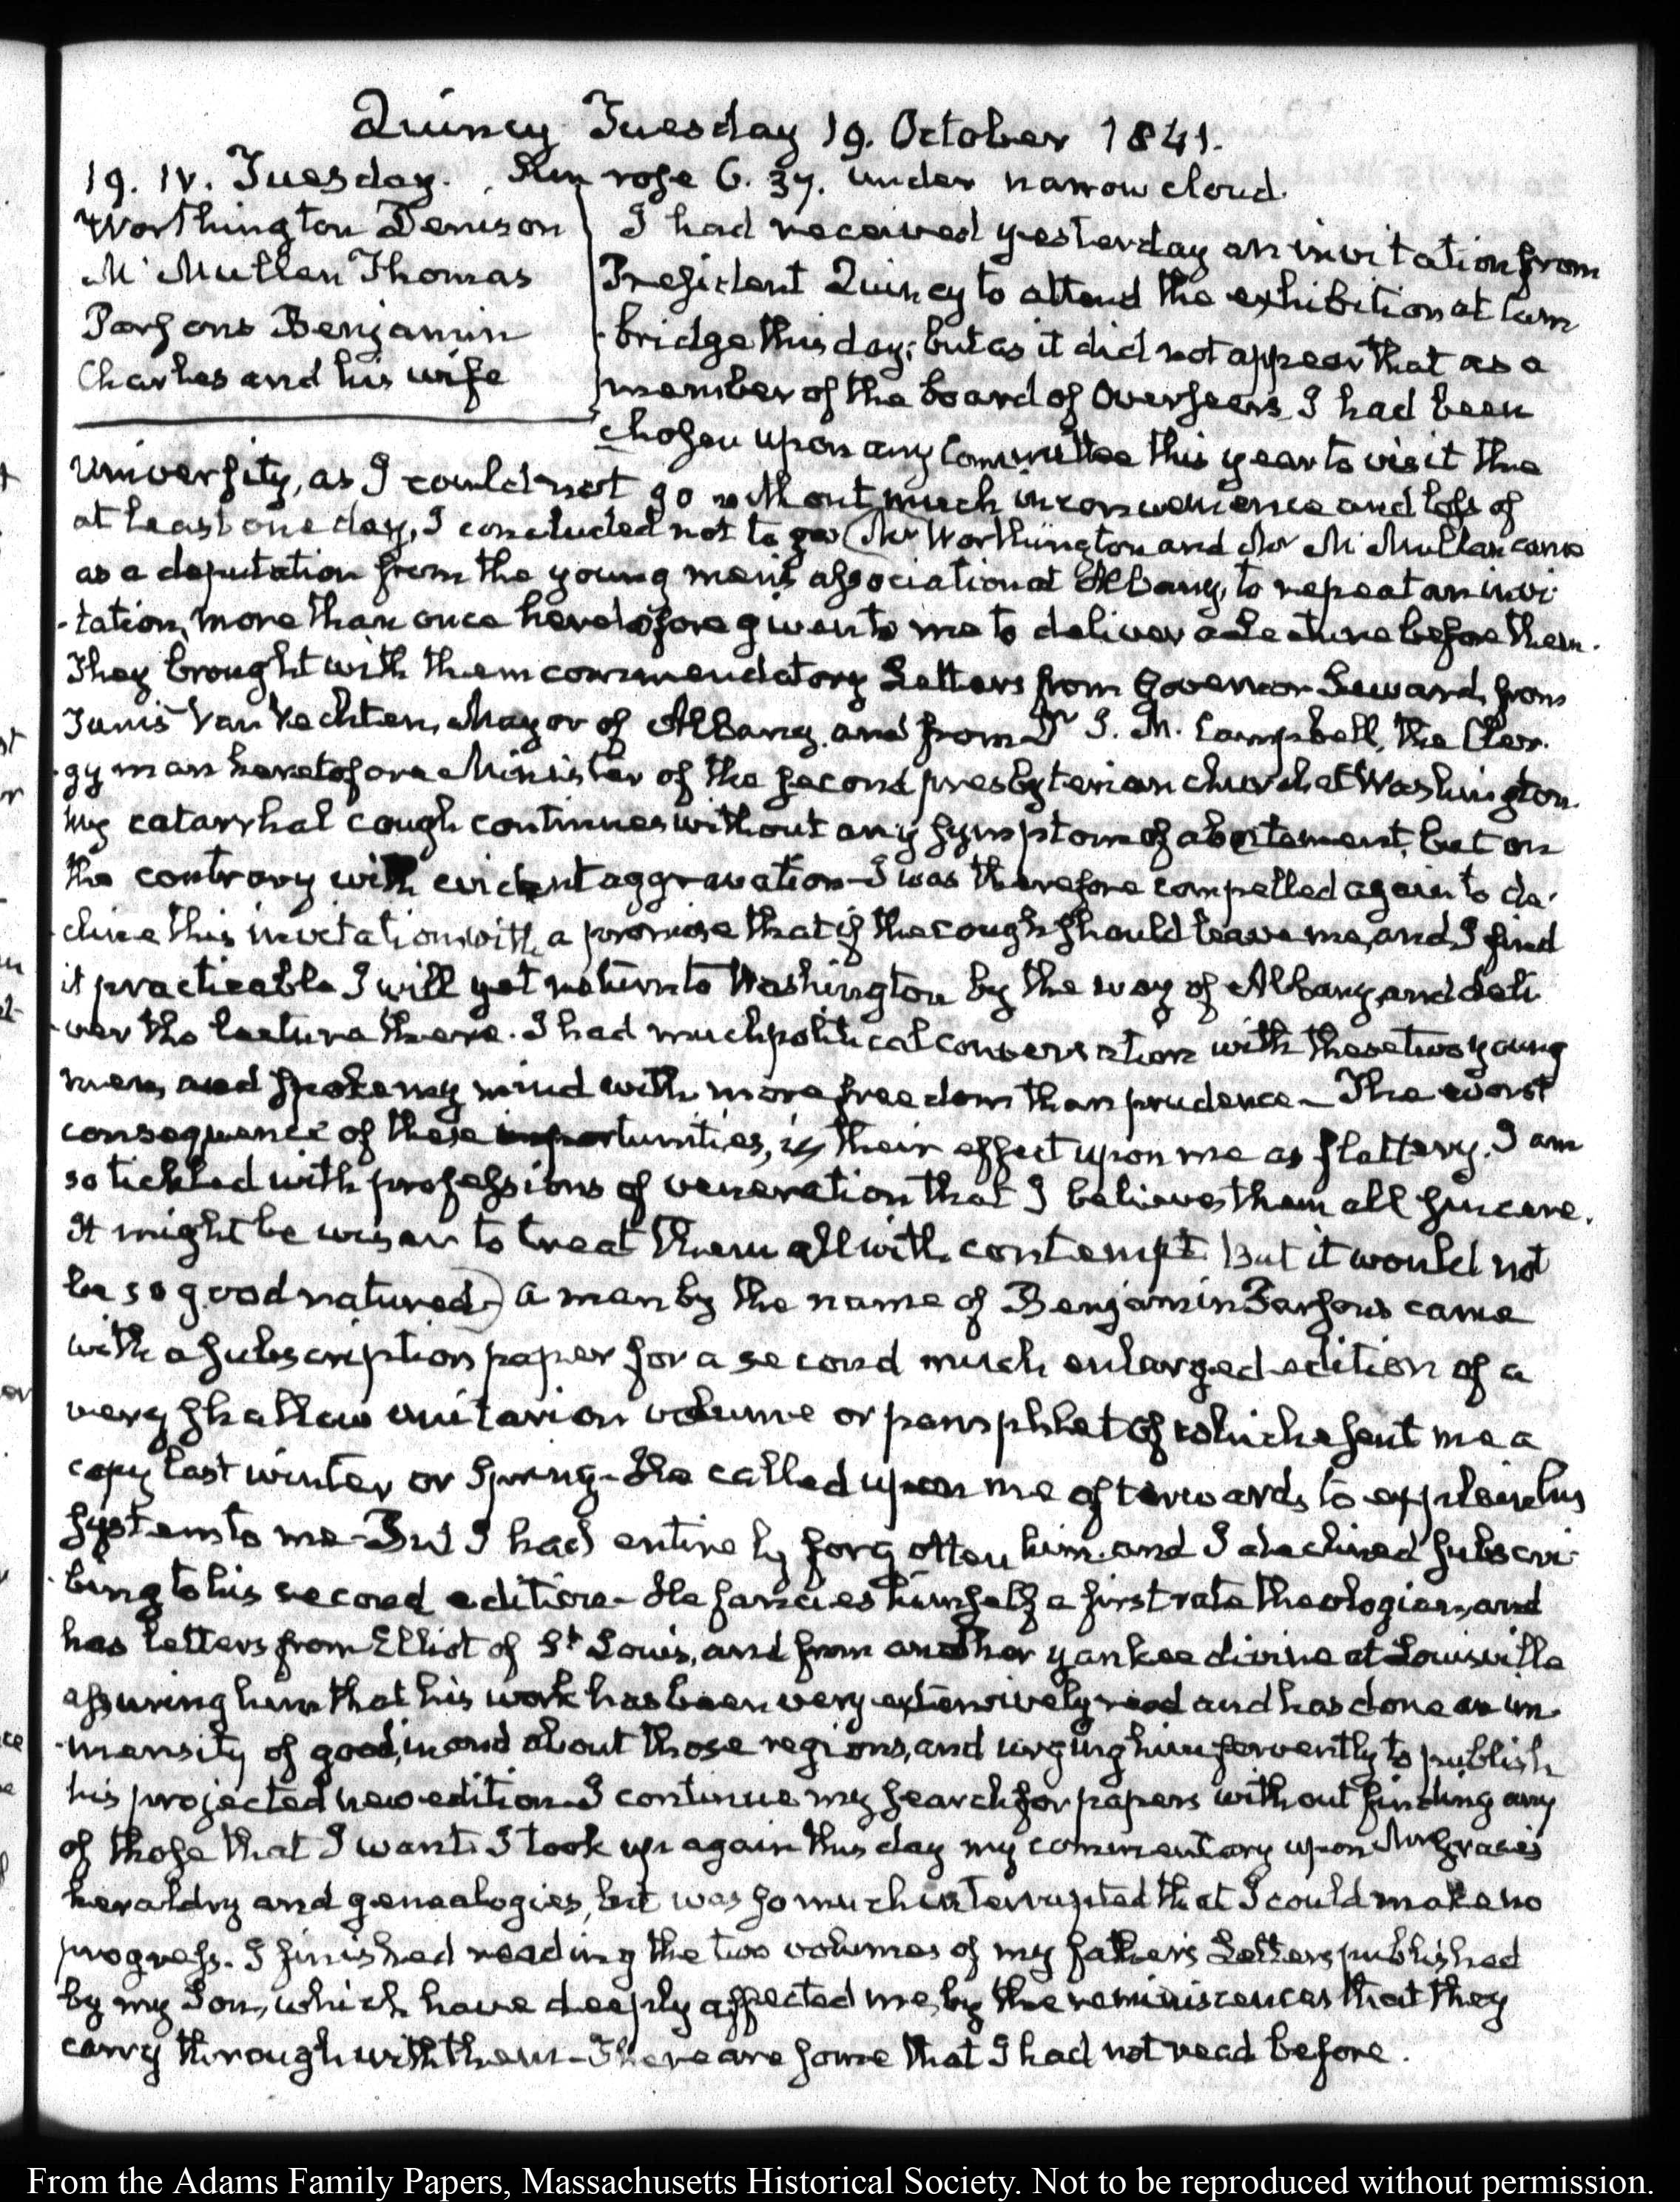 Quincy Tuesday 19. October 1841.
19. IV. Tuesday. Sun rose 6. 37. under narrow cloud.
Worthington Denison
Mc.Mullen Thomas
Parsons Benjamin
Charles and his wife
I had received yesterday an invitation from
President Quincy to attend the exhibition at Cam
-bridge this day; but as it did not appear that as a
member of the board of Overseers I had been
chosen upon any Committee this year to visit the
University, as I could not go without much inconvenience and loss of
at least one day, I concluded not to go (Mr Worthington and Mr Mc.Mullan came
as a deputation from the young men's association at Albany, to repeat an invi-
-tation, more than once heretofore given to me to deliver a Lecture before them.
They brought with them commendatory Letters from Governor Seward, from
Tunis Van Vechten, Mayor of Albany and from Dr J. M. Campbell, the Cler-
-gyman heretofore Minister of the second presbyterian church at Washington.
My catarrhal cough continues without any symptom of abatement, but on
the contrary with evident aggravation—I was therefore compelled again to de-
-cline this invitation with a promise that if the cough should leave me, and I find
it practicable I will yet return to Washington by the way of Albany, and deli
-ver the lecture there. I had much political conversation with these two young
men, and spoke my mind with more freedom than prudence—The worst
consequence of these importunities, is, their effect upon me as flattery. I am
so tickled with professions of veneration that I believe them all sincere.
It might be wiser to treat them all with contempt. But it would not
be so good natured—) A man by the name of Benjamin Parsons came
with a subscription paper for a second much enlarged edition of a
very shallow unitarian volume or pamphlet of which he sent me a
copy last winter or Spring—He called upon me afterwards to explain his
system to me—But I had entirely forgotten him and I declined subscri-
-bing to his second edition—He fancies himself a first rate theologian, and
has letters from Elliot of St Louis, and from another yankee divine at Louisville
assuring him that his work has been very extensively read and has done an im-
-mensity of good, in and about those regions, and urging him fervently to publish
his projected new edition—I continue my search for papers without finding any
of those that I want. I took up again this day my commentary upon Mr Grace's
heraldry and genealogies, but was so much interrupted that I could make no
progress. I finished reading the two volumes of my father's Letters published
by my Son, which have deeply affected me, by the reminiscences that they
carry through with them—There are some that I had not read before.
From the Adams Family Papers, Massachusetts Historical Society. Not to be reproduced without permission.